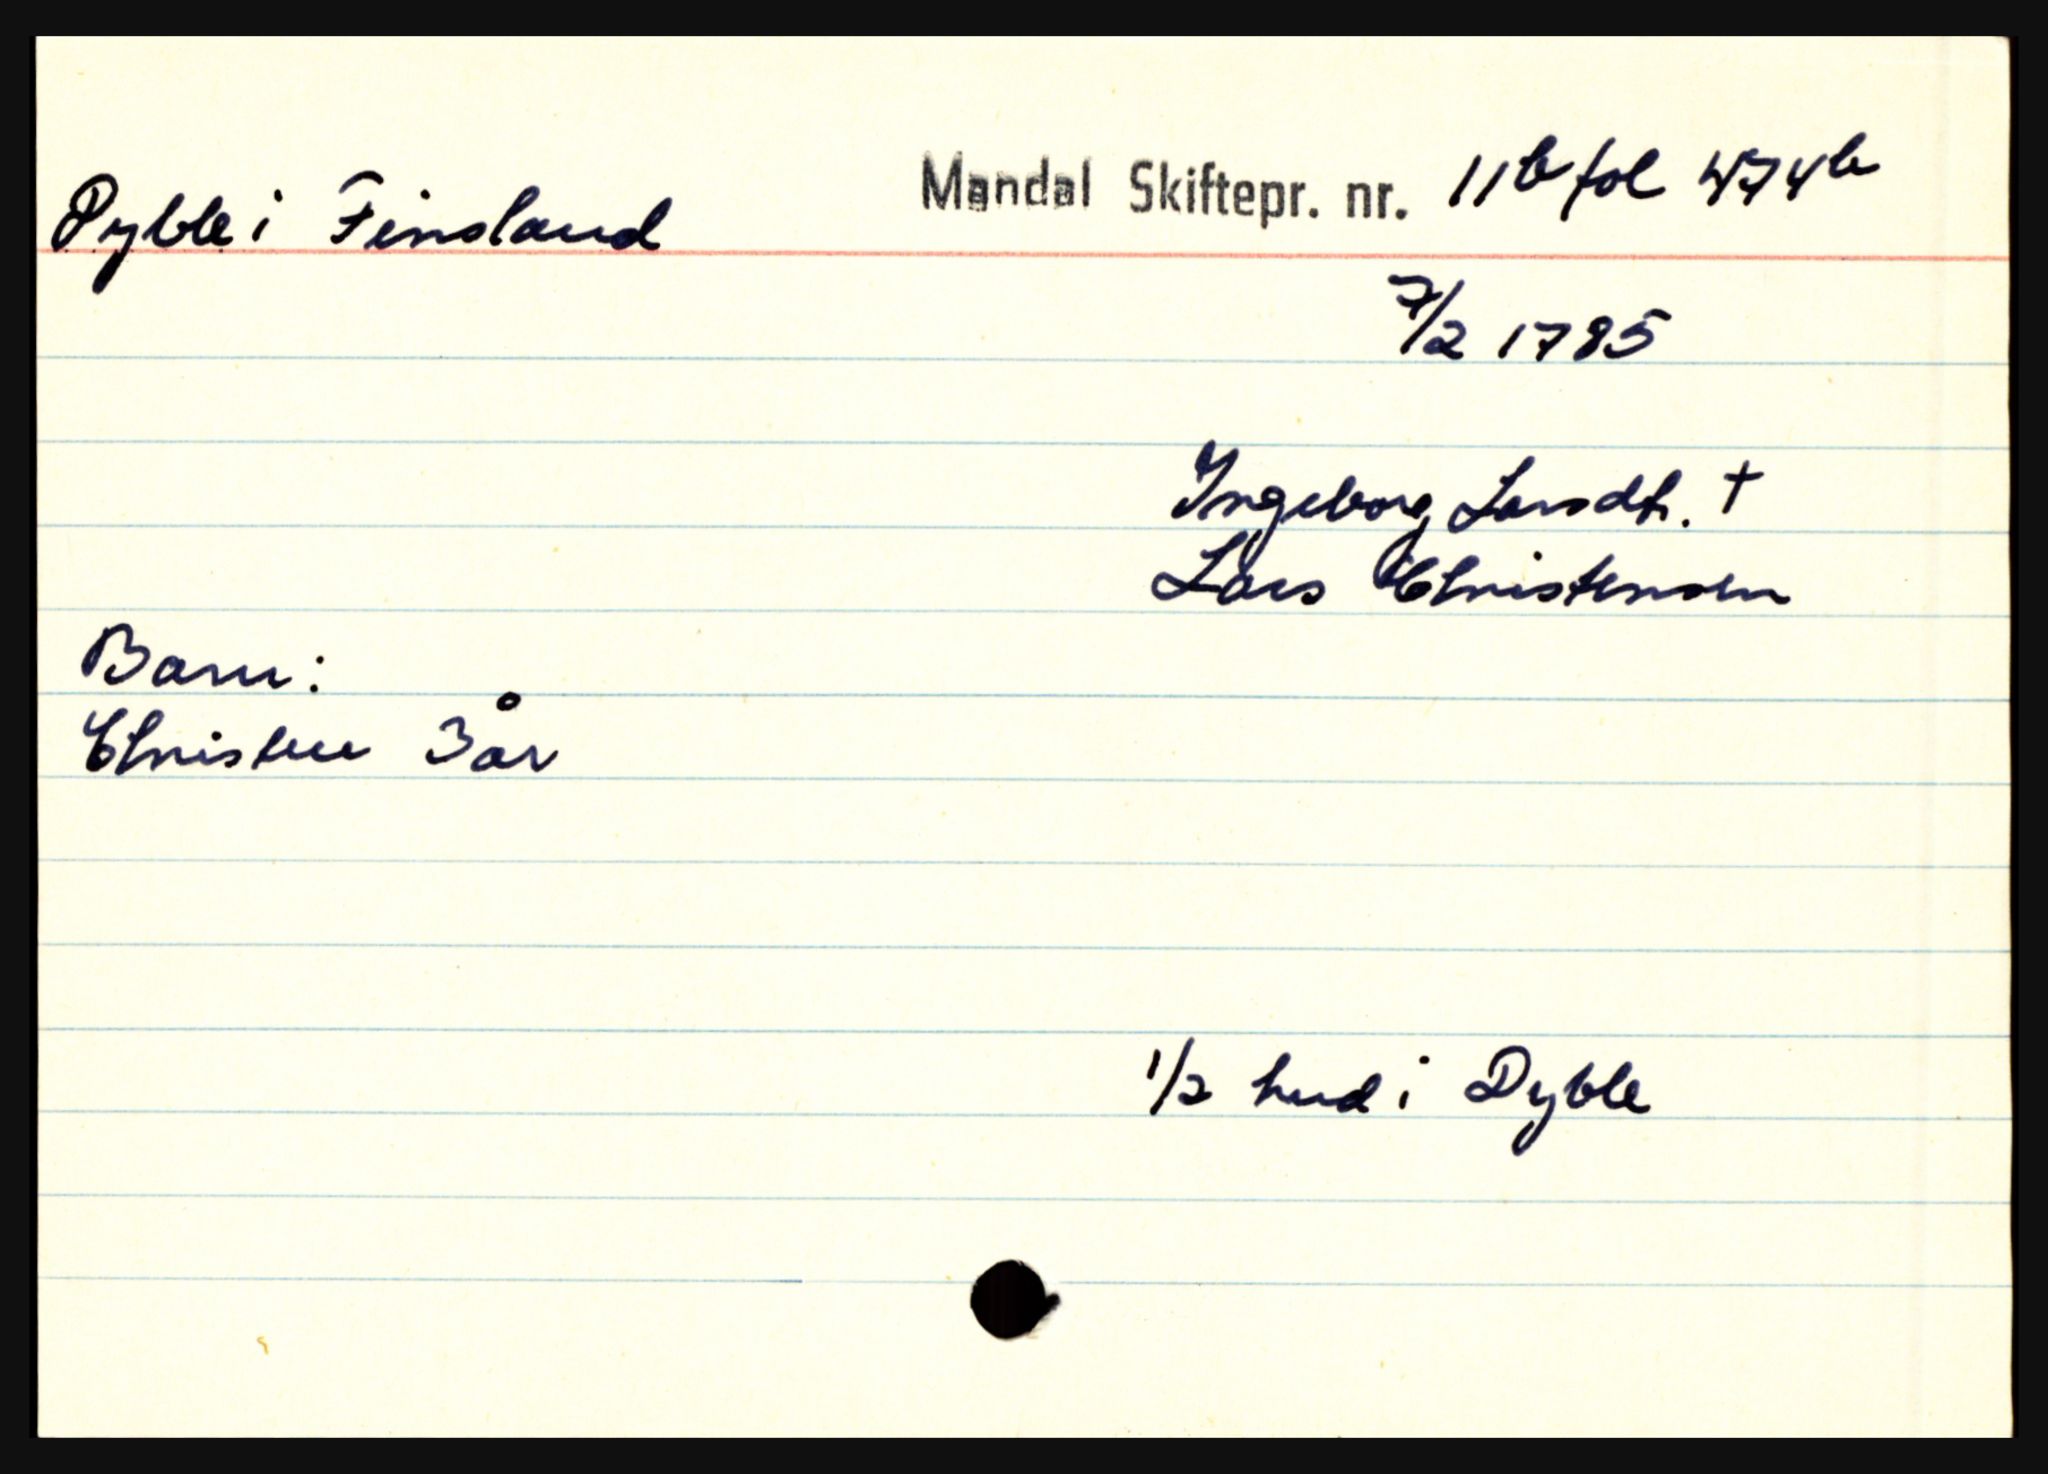 Dyble i Finsland
Mandal Skiftepr. nr. 11b fol 474b
7/2 1785
Ingeborg Larsdt. †
Lars Christensen
Barn:
Christen 3 år
1/2 hud i Dyble